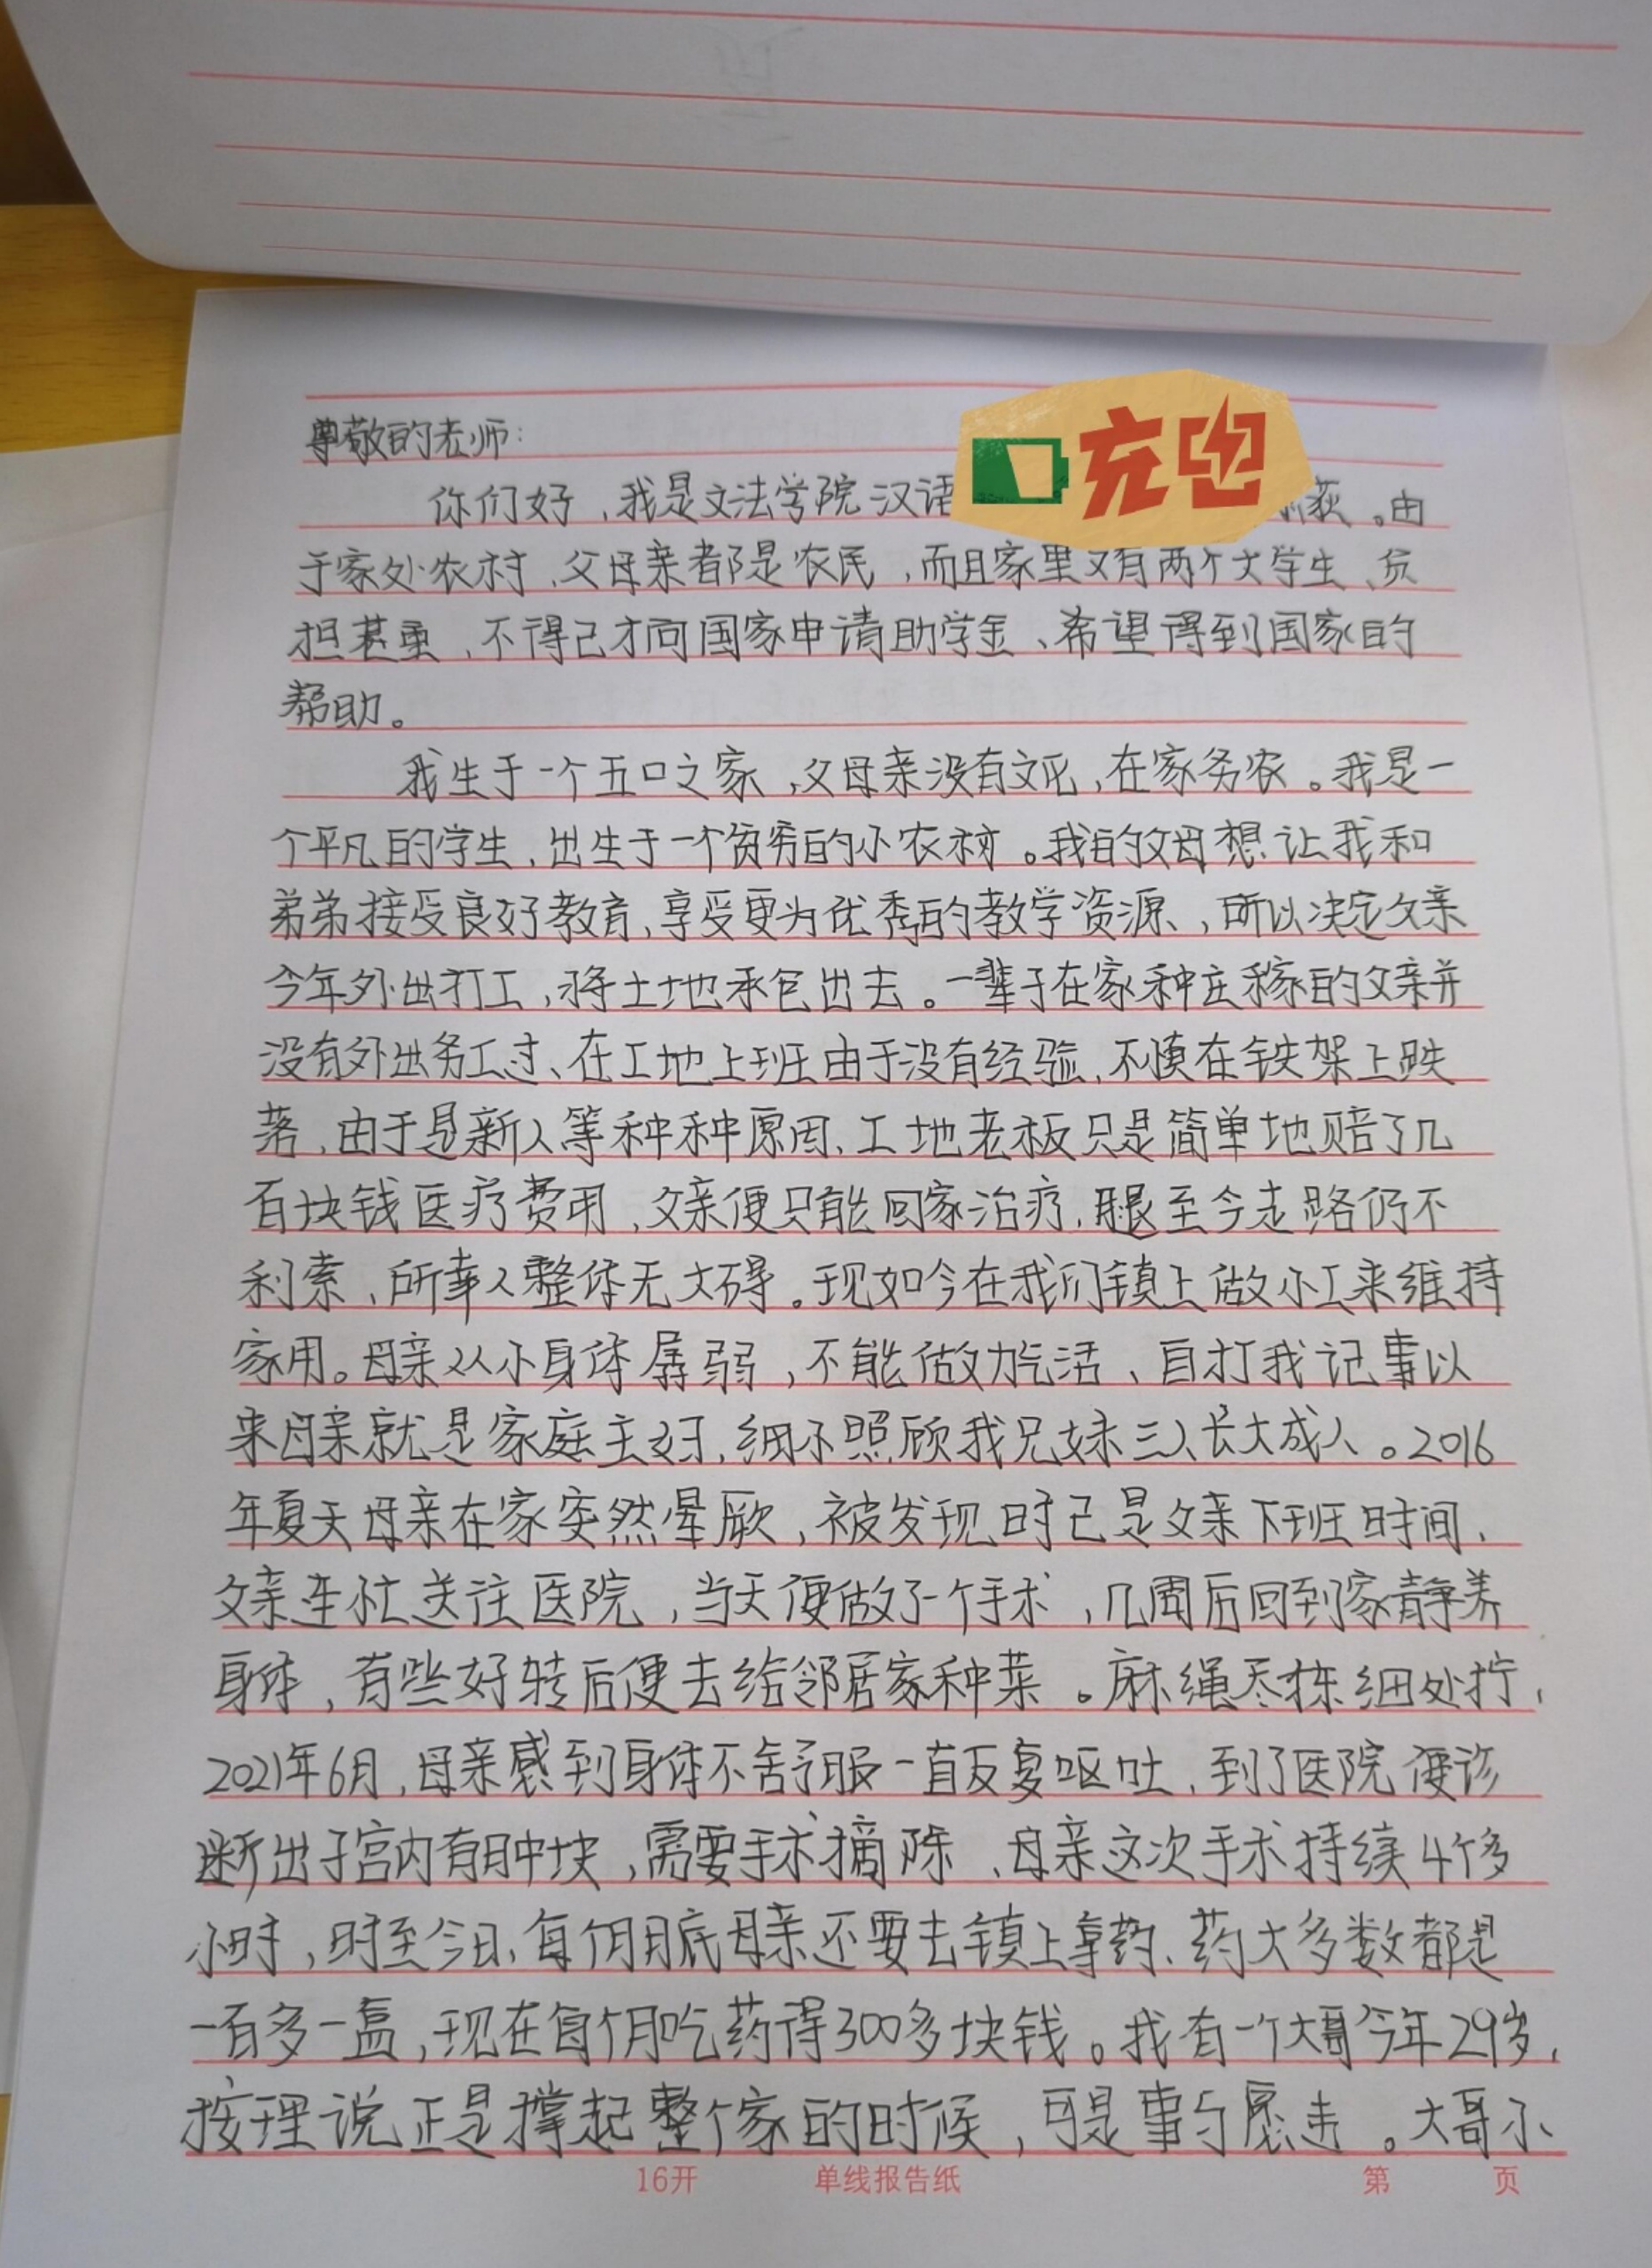 尊敬的老师：
充电
你们好，我是文法学院汉语荻。由
于家处农村，父母亲都是农民，而且家里又有两个大学生、负
担甚重，不得已才向国家申请助学金、希望得到国家的
帮助。
我生于一个五口之家，父母亲没有文化，在家务农。我是一
个平凡的学生，出生于一个贫穷的小农村。我的父母想让我和
弟弟接受良好教育，享受更为优秀的教学资源、，所以决定父亲
今年外出打工，将土地承包出去。一辈子在家种庄稼的父亲并
没有外出务工过、在工地上班由于没有经验，不慎在铁架上跌
落，由于是新人等种种原因，工地老板只是简单地赔了几
百块钱医疗费用，父亲便只能回家治疗，腿至今走路仍不
利索、所幸人整体无大碍。现如今在我们镇上做小工来维持
家用。母亲从小身体孱弱，不能做力气活、自打我记事以
来母亲就是家庭主妇，细心照顾我兄妹三人长大成人。2016
年夏天母亲在家突然晕厥，被发现时已是父亲下班时间，
父亲连忙送往医院，当天便做了个手术，几周后回到家静养
身体，有些好转后便去给邻居家种菜。麻绳尽拣细处拧，
2021年6月，母亲感到身体不舒服一直反复呕吐，到了医院便诊
断出子宫内有肿块，需要手术摘除、母亲这次手术持续4个多
小时，时至今日，每个月月底母亲还要去镇上拿药、药大多数都是
一百多一盒，现在每个月吃药得300多块钱。我有一个大哥今年29岁，
按理说正是撑起整个家的时候，可是事与愿违。大哥小
16开 单线报告纸 第 页